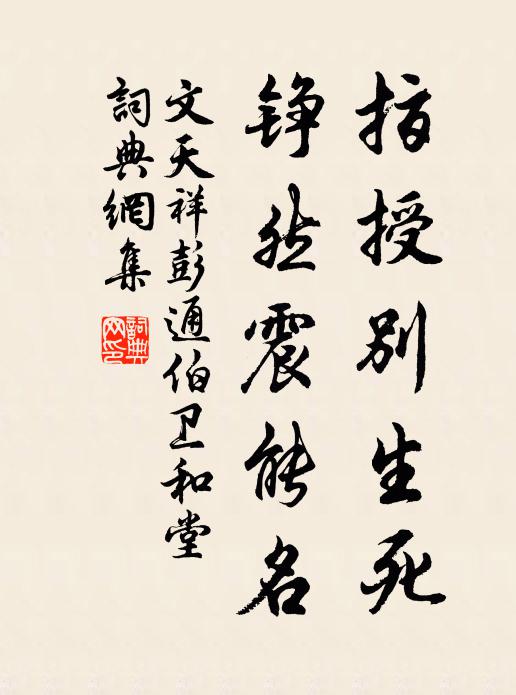 指授别生死
铮然震能名
文天祥彭通伯卫和堂
詞典網集
詞典网印